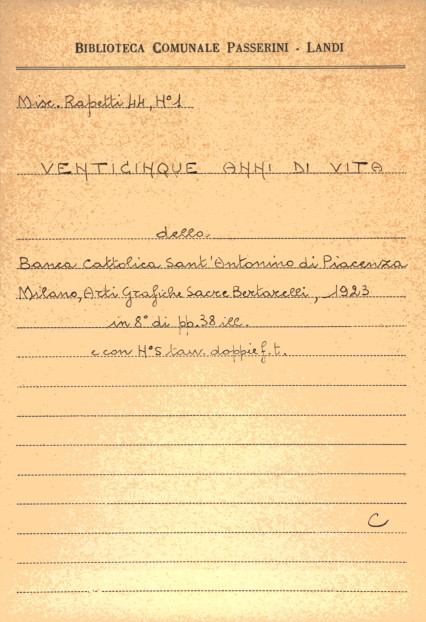 BIBLIOTECA COMUNALE PASSERINI - LANDI
Misc. Rapetti 44, N° 1
VENTICINQUE ANNI DI VITA
della
Banca Cattolica Sant'Antonino di Piacenza
Milano, Arti Grafiche Sacre Bertarelli, 1923
in 8° di pp. 38 ill.
e con N° 5 tav. doppie f. t.
C